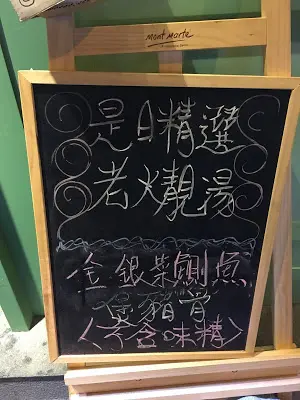 mont marte
是日精選
老火靚湯
金銀菜鰂魚
煲豬骨
<不含味精>